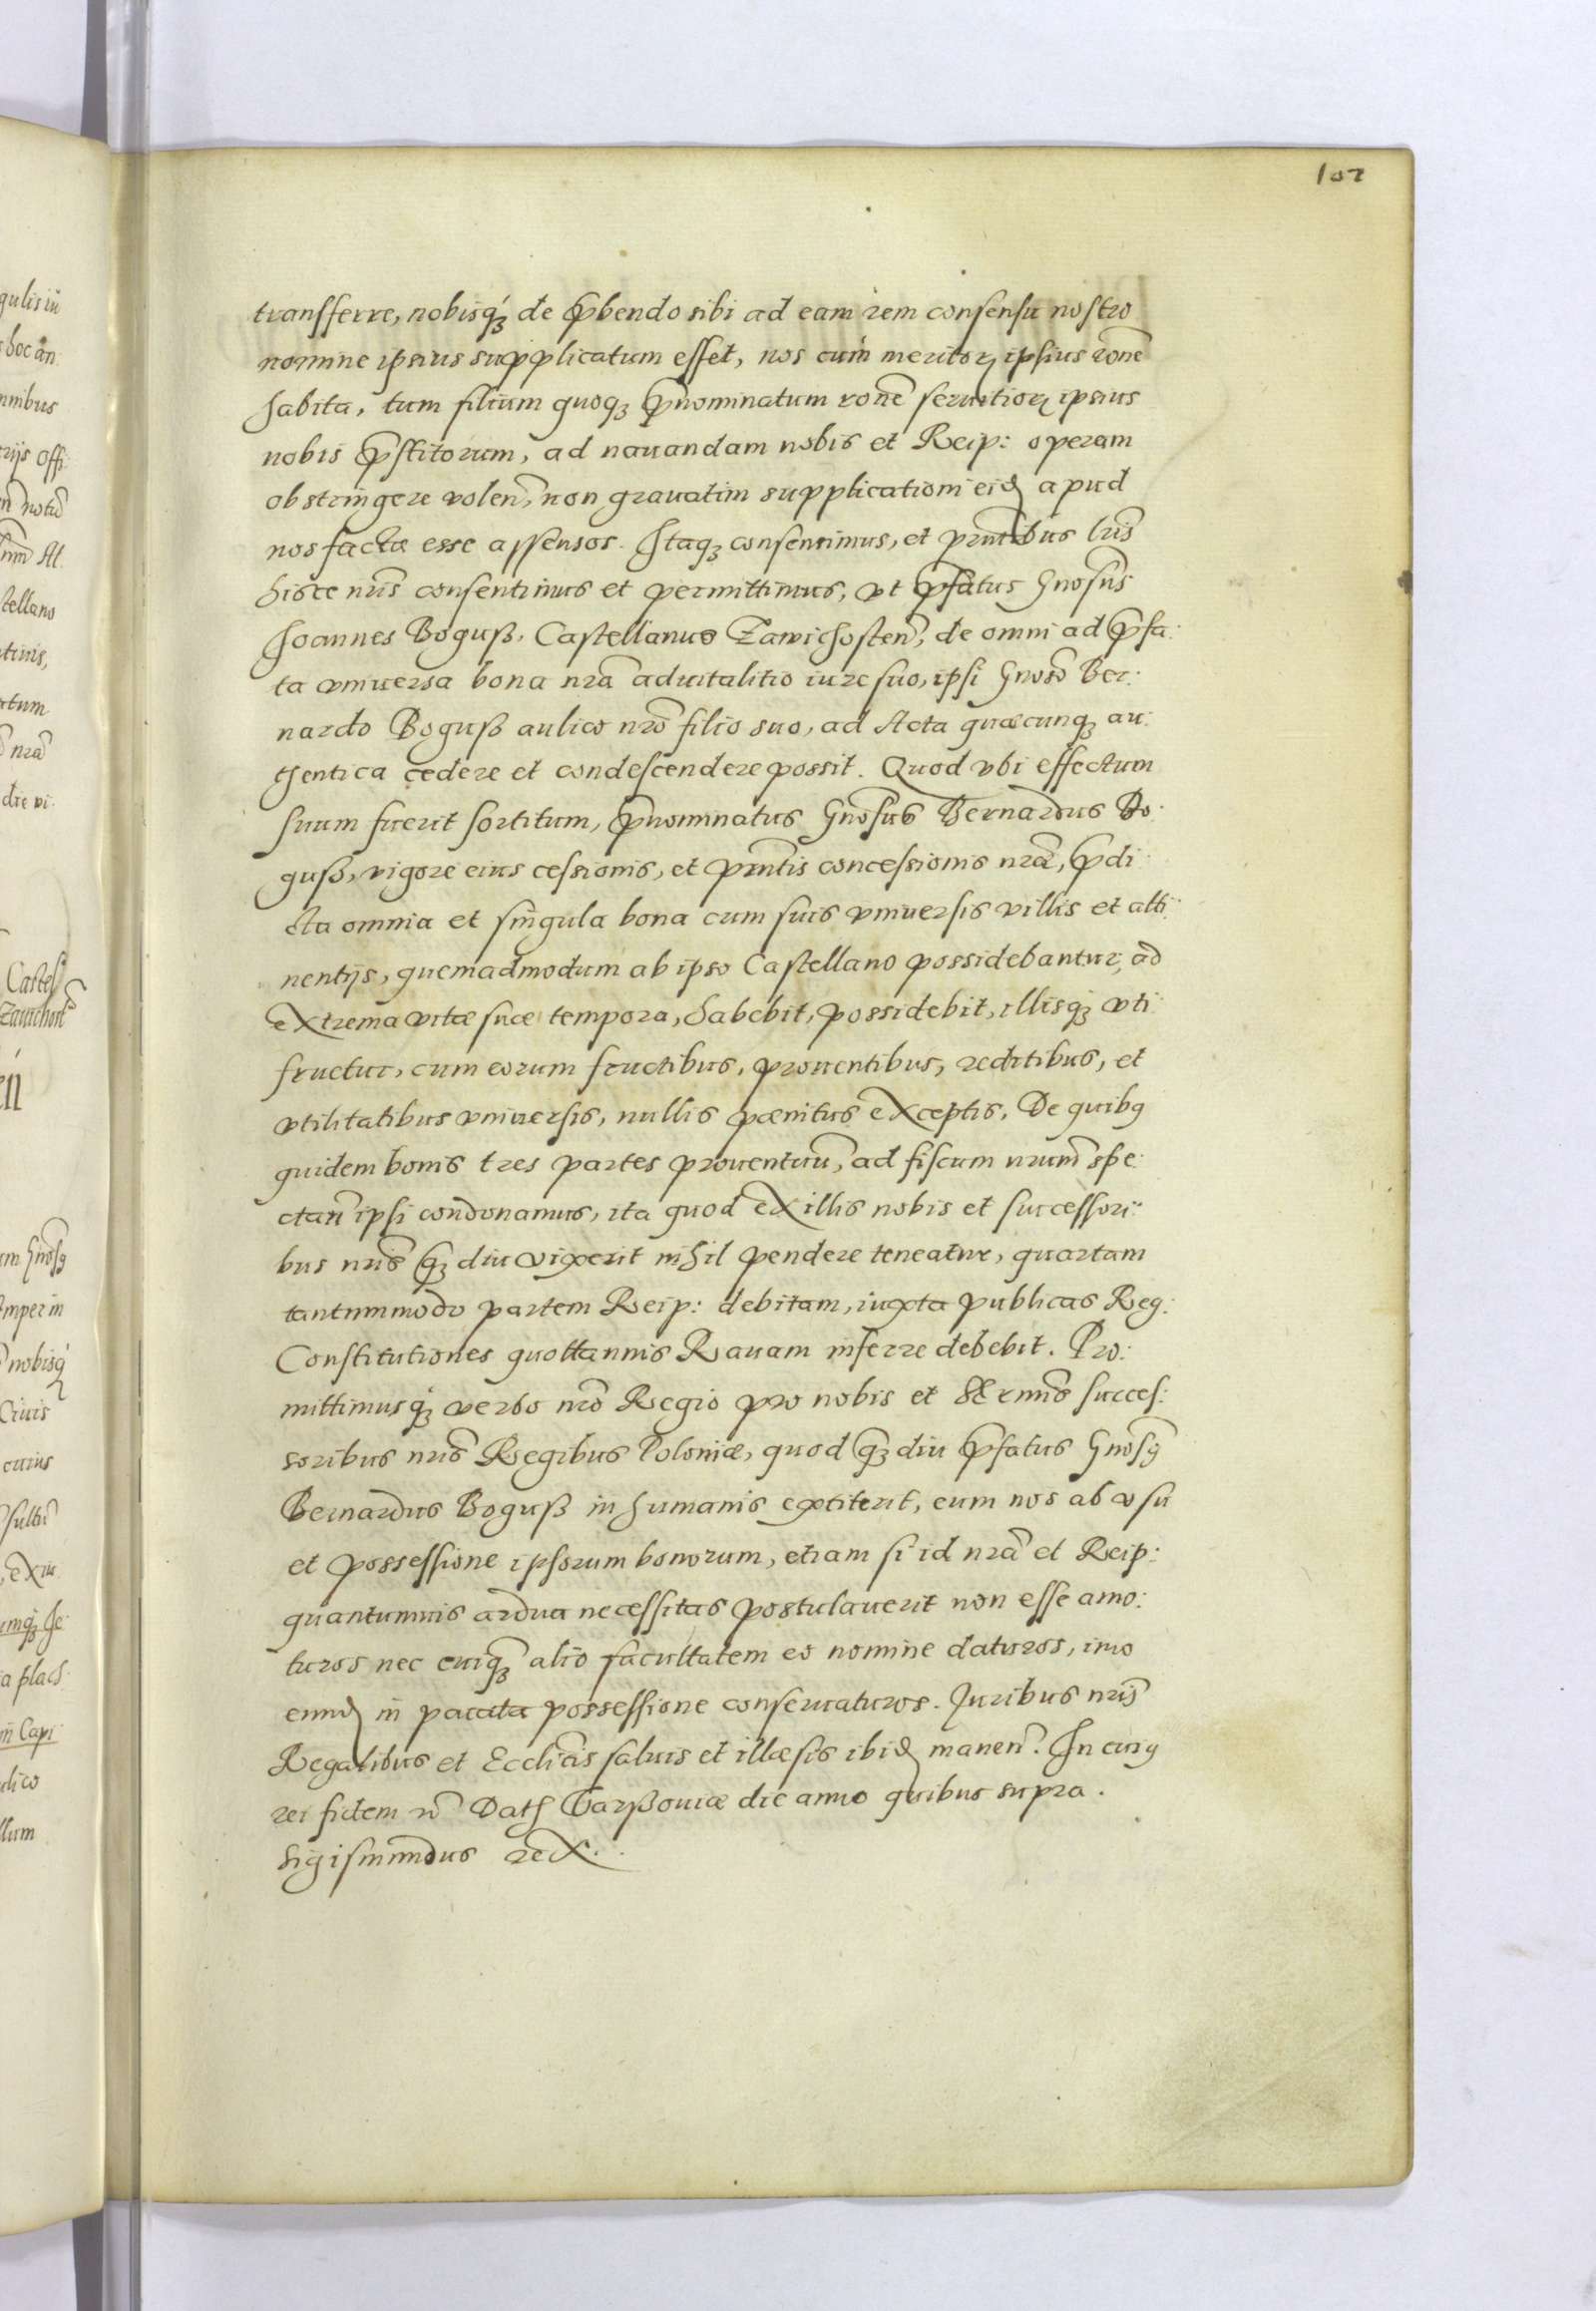 102
transfferre, nobisq́ꝫ de p̄bendo sibi ad eam rem consensu nostro
nomine ipsius supplicatum esset, nos cum meritoꝝ ipsius rone
habita, tum filium quoqꝫ p̄nominatum rone seruitioꝝ ipsius
nobis p̄stitorum, ad nauandam nobis et Reip: operam
obstringere volen, non grauatim supplicationi eid apud
nos factæ esse assensos. Itaqꝫ consensimus, et prntibus lris
hisce nris consentimus et permittimus, vt p̄fatus Gnosus
Joannes Boguß, Castellanus Zawichosten, de omni ad p̄fa:
ta vniuersa bona nra aduitalitio iure suo, ipsi Gnoso Ber:
nardo Boguß aulico nro filio suo, ad Acta quæcunqꝫ au:
thentica cedere et condescendere possit. Quod vbi effectum
suum fuerit sortitum, p̄nominatus Gnosus Bernardus Bo:
guß, vigore eius cessionis, et prntis concessionis nræ, p̄di
cta omnia et singula bona cum suis vniuersis villis et atti:
nentijs, quemadmodum ab ipso Castellano possidebantur, ad
extrema vitæ suæ tempora, habebit, possidebit, illisqꝫ vti
fruetur, cum eorum fructibus, prouentibus, reditibus, et
vtilitatibus vniuersis, nullis pænitus exceptis. De quibꝯ
quidem bonis tres partes prouentuu, ad fiscum nrum spe:
ctan ipsi condonamus, ita quod ex illis nobis et successori:
bus nris qꝫ diu vixerit nihil pendere teneatur, quartam
tantummodo partem Reip: debitam, iuxta publicas Reg:
Constitutiones quottannis Rauam inferre debebit. Pro:
mittimusqꝫ verbo nro Regio pro nobis et Sermis succes:
soribus nris Regibus Poloniæ, quod qꝫ diu p̄fatus Gnosꝯ
Bernardus Boguß in humanis extiterit, eum nos ab vsu
et possessione ipsorum bonorum, etiam si id nra et Reip:
quantumuis ardua necessitas postulauerit non esse amo:
turos nec cuiqꝫ alio facultatem eo nomine daturos, imo
eund in pacata possessione conseruaturos. Juribus nris
Regalibus et Ecclicis saluis et illæsis ibid manen. In cuiꝯ
rei fidem rc Dath Varßouiæ die anno quibus supra.
Sigismundus rex.